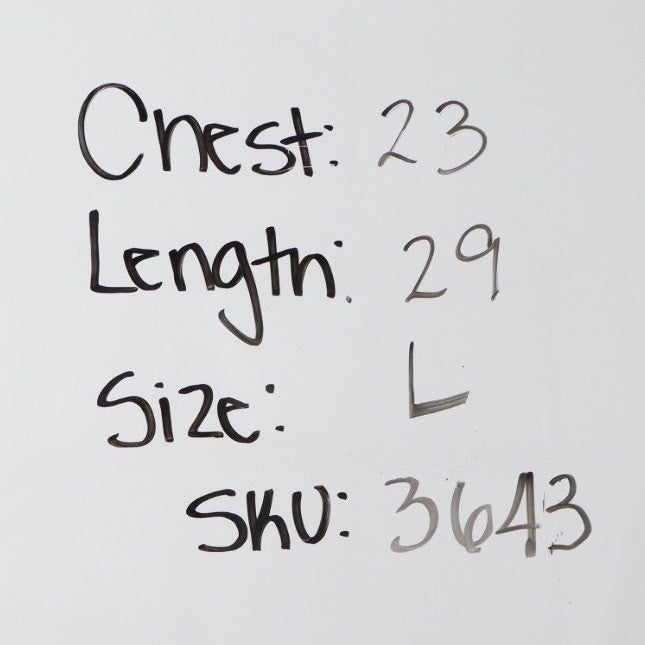 Chest: 23
Length: 29
Size: L
SKU: 3643